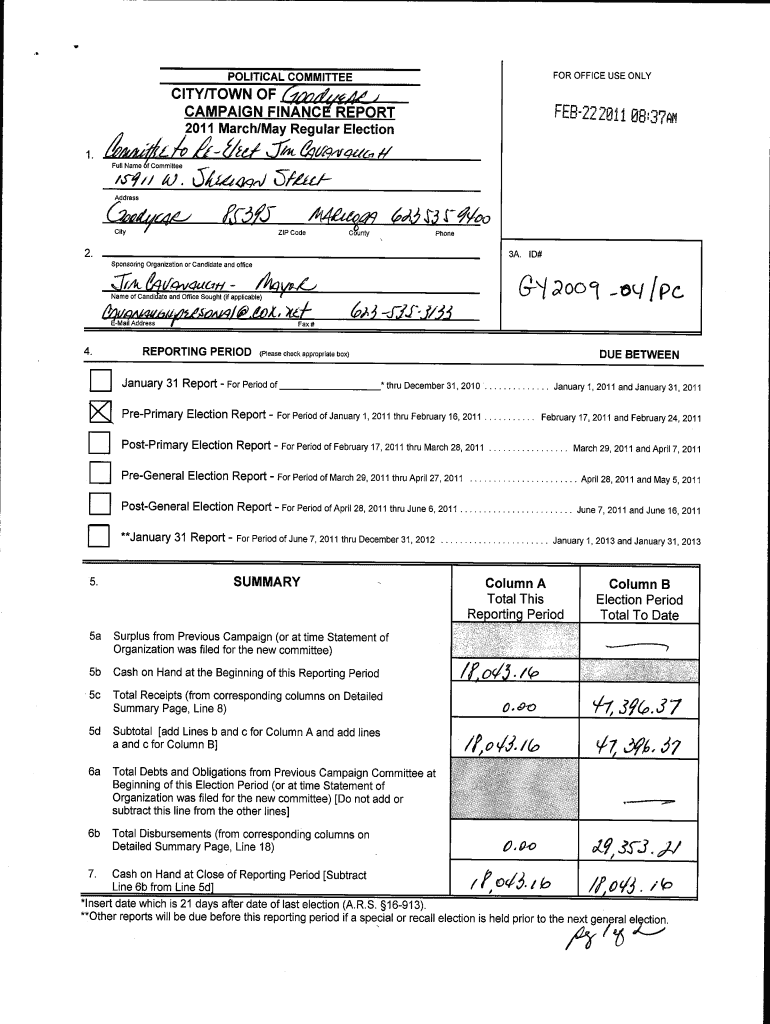 POLITICAL COMMITTEE
CITY/TOWN OF Goodyear
CAMPAIGN FINANCE REPORT
2011 March/May Regular Election
FOR OFFICE USE ONLY
FEB-22 2011 08:37AM
1. Committee to Re-Elect Jim Cavanaugh
Full Name of Committee
15911 W. Sheridan Street
Address
Goodyear 85395 Maricopa 623 535 9400
City ZIP Code County Phone
2.
Sponsoring Organization or Candidate and office
3A. ID#
Jim Cavanaugh - Mayor
GY2009-04/PC
Name of Candidate and Office Sought (if applicable)
cavanaughpersonal@cox.net 623-535-3133
E-Mail Address Fax #
4. REPORTING PERIOD (Please check appropriate box) DUE BETWEEN
January 31 Report - For Period of ____________ * thru December 31, 2010 .............. January 1, 2011 and January 31, 2011
X Pre-Primary Election Report - For Period of January 1, 2011 thru February 16, 2011 ........... February 17, 2011 and February 24, 2011
Post-Primary Election Report - For Period of February 17, 2011 thru March 28, 2011 ................. March 29, 2011 and April 7, 2011
Pre-General Election Report - For Period of March 29, 2011 thru April 27, 2011 ....................... April 28, 2011 and May 5, 2011
Post-General Election Report - For Period of April 28, 2011 thru June 6, 2011 ........................ June 7, 2011 and June 16, 2011
**January 31 Report - For Period of June 7, 2011 thru December 31, 2012 ....................... January 1, 2013 and January 31, 2013
5. SUMMARY
Column A
Total This
Reporting Period
Column B
Election Period
Total To Date
5a Surplus from Previous Campaign (or at time Statement of
Organization was filed for the new committee)
5b Cash on Hand at the Beginning of this Reporting Period 18,043.16
5c Total Receipts (from corresponding columns on Detailed
Summary Page, Line 8) 0.00 47,396.37
5d Subtotal [add Lines b and c for Column A and add lines
a and c for Column B] 18,043.16 47,396.37
6a Total Debts and Obligations from Previous Campaign Committee at
Beginning of this Election Period (or at time Statement of
Organization was filed for the new committee) [Do not add or
subtract this line from the other lines]
6b Total Disbursements (from corresponding columns on
Detailed Summary Page, Line 18) 0.00 29,353.21
7. Cash on Hand at Close of Reporting Period [Subtract
Line 6b from Line 5d] 18,043.16 18,043.16
*Insert date which is 21 days after date of last election (A.R.S. §16-913).
**Other reports will be due before this reporting period if a special or recall election is held prior to the next general election.
pg 1 of 2